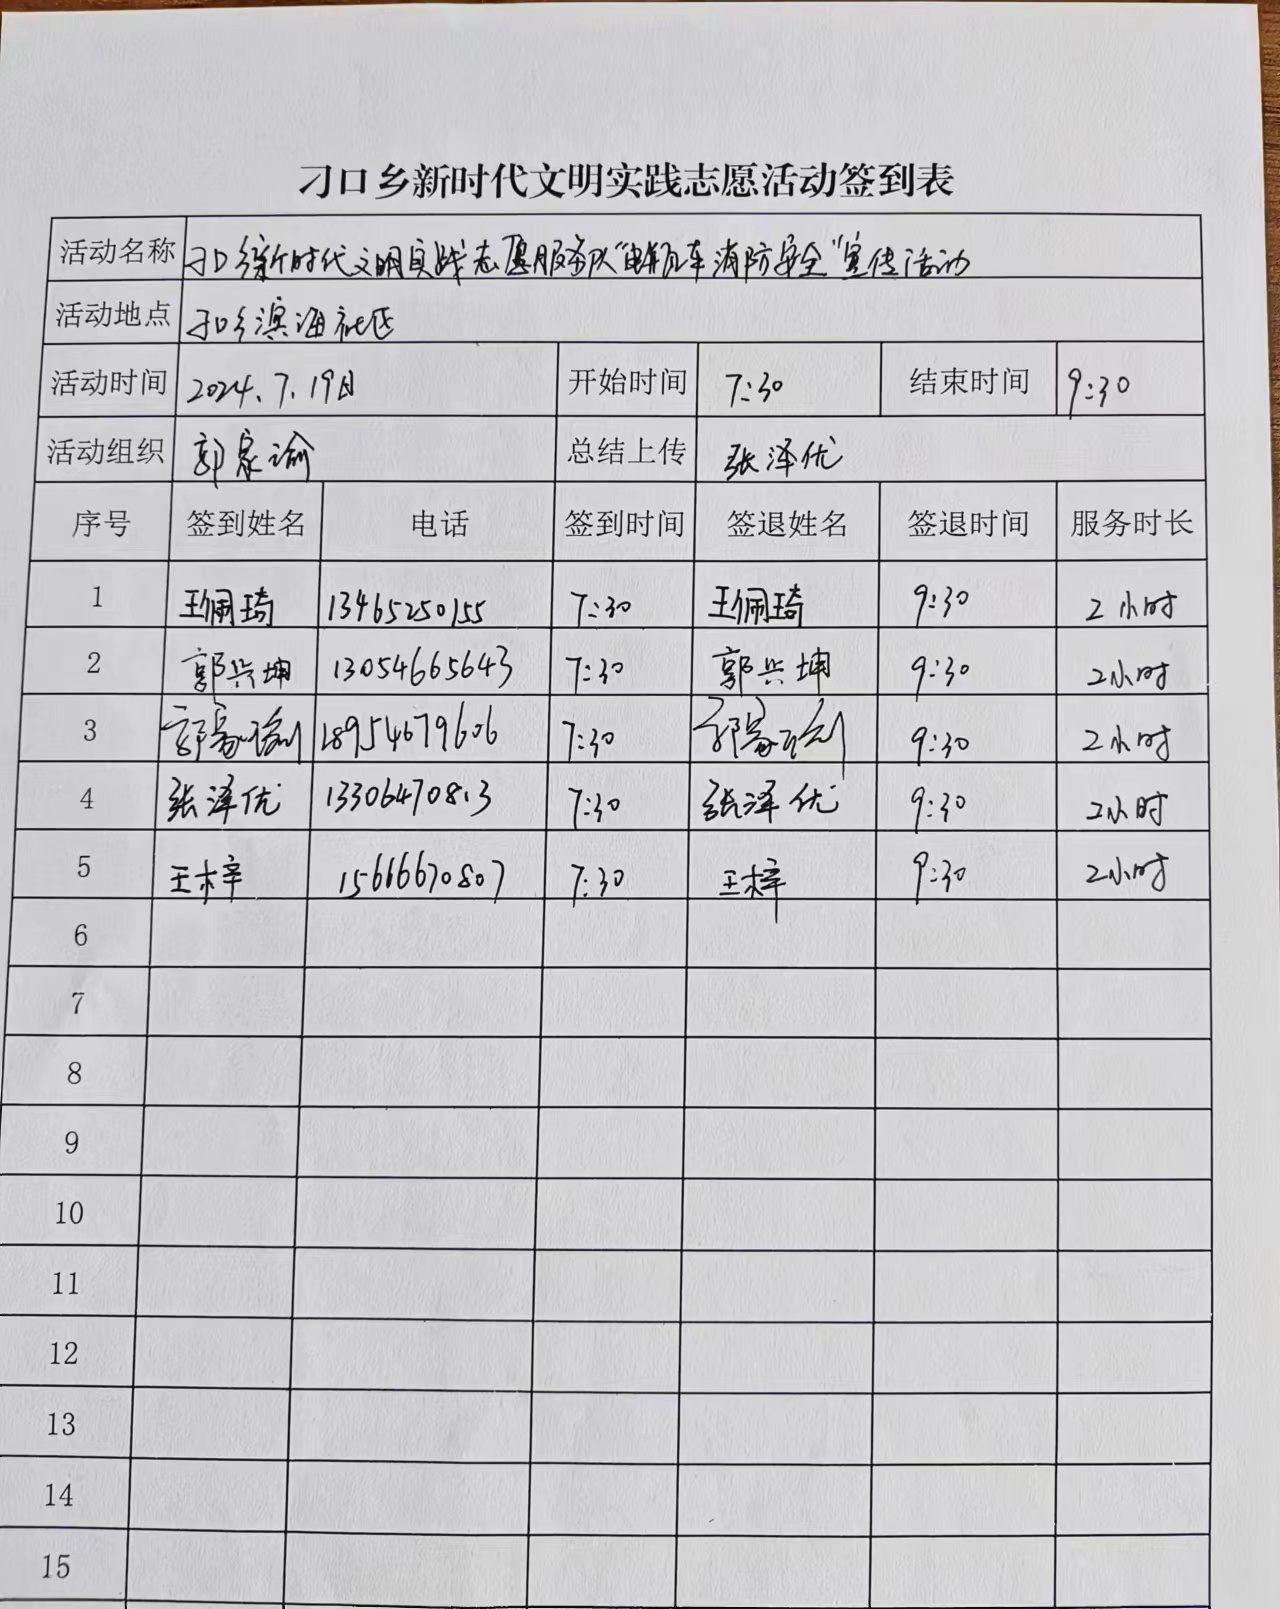 刁口乡新时代文明实践志愿活动签到表
活动名称 刁口乡新时代文明实践志愿服务队"电瓶车消防安全"宣传活动
活动地点 刁口乡滨海社区
活动时间 2024.7.19日 开始时间 7:30 结束时间 9:30
活动组织 郭家谕 总结上传 张泽优
序号 签到姓名 电话 签到时间 签退姓名 签退时间 服务时长
1 王佩琦 13465250155 7:30 王佩琦 9:30 2小时
2 郭兴坤 13054665643 7:30 郭兴坤 9:30 2小时
3 18954679606 7:30 9:30 2小时
4 张泽优 13306470813 7:30 张泽优 9:30 2小时
5 王梓 15666670807 7:30 王梓 9:30 2小时
6
7
8
9
10
11
12
13
14
15